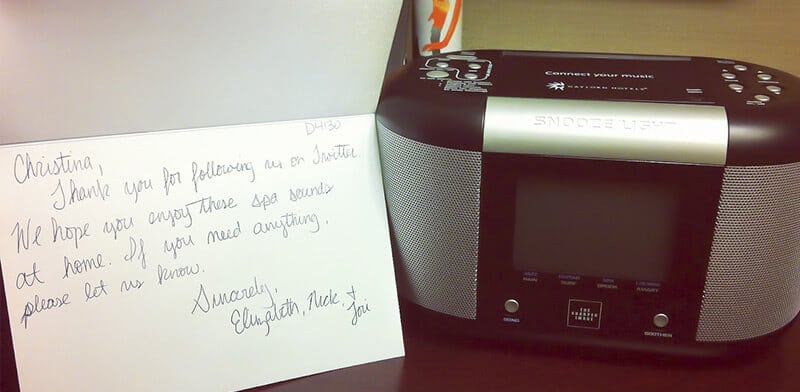 D4130
Christina,
Thank you for following us on Twitter.
We hope you enjoy these spa sounds
at home. If you need anything,
please let us know.
Sincerely,
Elizabeth, Nick, +
Lori
Connect your music
GAYLORD HOTELS
SNOOZE/LIGHT
RAIN SURF BROOK
SONG
THE
SHARPER
IMAGE
SOOTHER